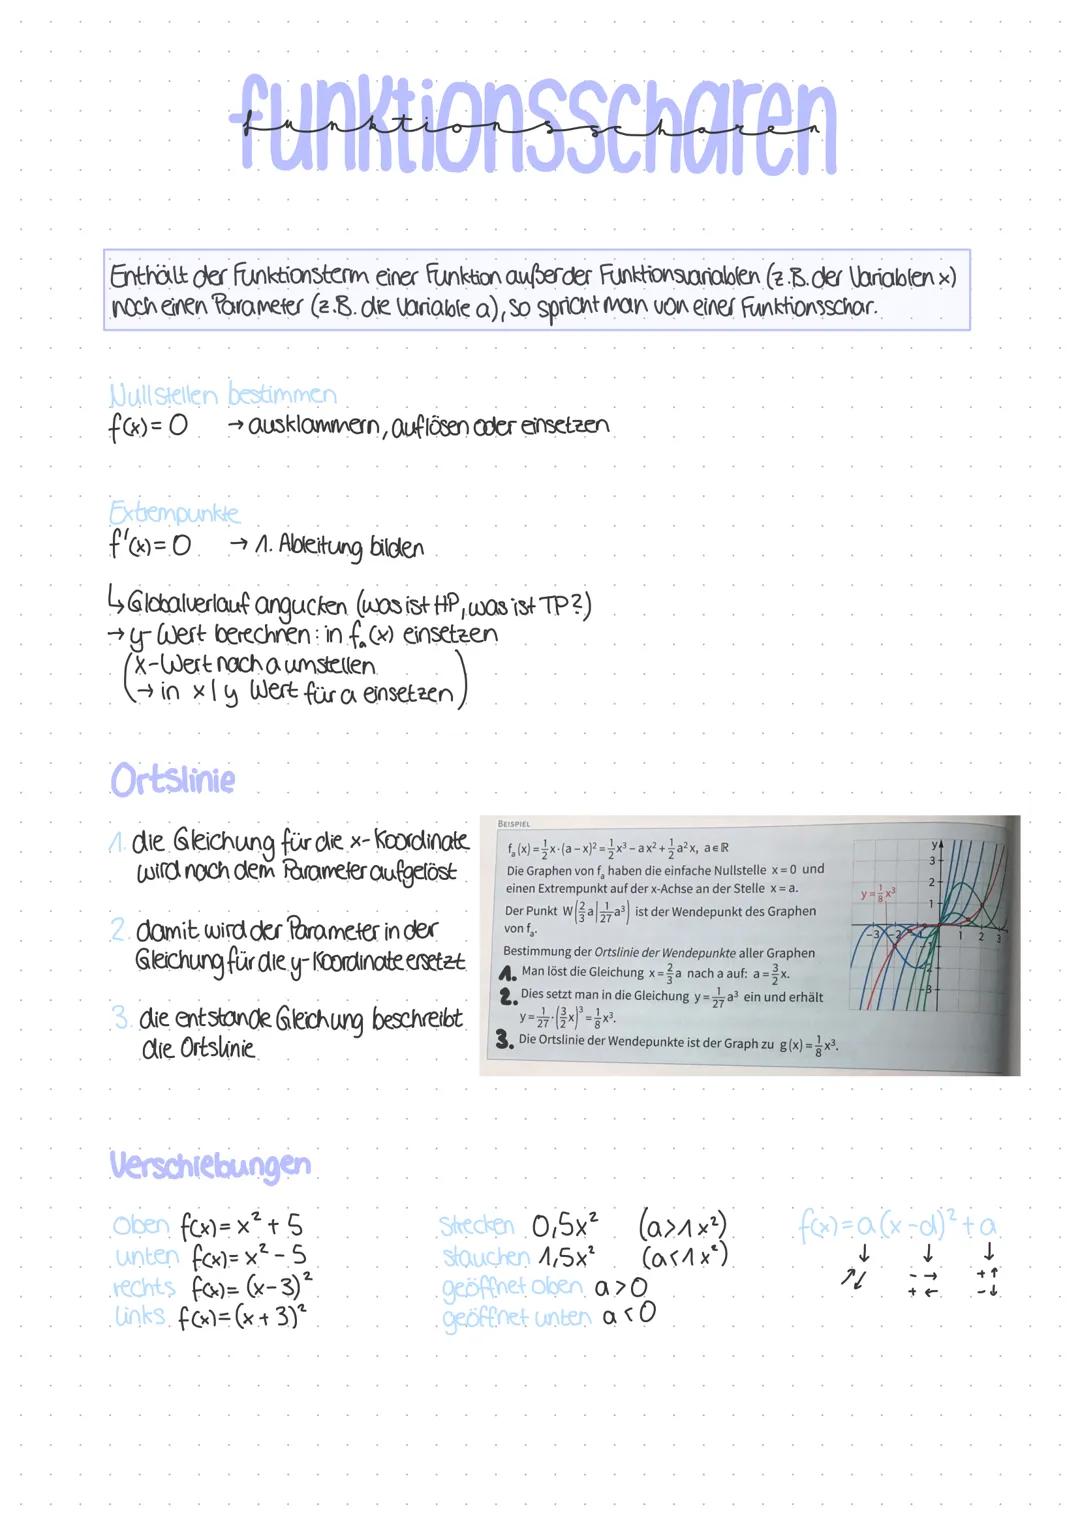 funktionsscharen
funktionsscharen
Enthält der Funktionsterm einer Funktion außer der Funktionsvariablen (z.B. der Variablen x)
noch einen Parameter (z.B. die Variable a), so spricht man von einer Funktionsschar.
Nullstellen bestimmen
f(x) = 0 → ausklammern, auflösen oder einsetzen
Extrempunkte
f'(x) = 0 → 1. Ableitung bilden
↳ Globalverlauf angucken (was ist HP, was ist TP?)
→ y-Wert berechnen: in fₐ(x) einsetzen
(x-Wert nach a umstellen
→ in x|y Wert für a einsetzen)
Ortslinie
1. die Gleichung für die x-Koordinate
wird nach dem Parameter aufgelöst
2. damit wird der Parameter in der
Gleichung für die y-Koordinate ersetzt
3. die entstande Gleichung beschreibt
die Ortslinie
BEISPIEL
fₐ(x) = 1/2 x · (a − x)² = 1/2 x³ − ax² + 1/2 a²x, a ∈ ℝ
Die Graphen von fₐ haben die einfache Nullstelle x = 0 und
einen Extrempunkt auf der x-Achse an der Stelle x = a.
Der Punkt W(2/3 a | 1/27 a³) ist der Wendepunkt des Graphen
von fₐ.
Bestimmung der Ortslinie der Wendepunkte aller Graphen
1. Man löst die Gleichung x = 2/3 a nach a auf: a = 3/2 x.
2. Dies setzt man in die Gleichung y = 1/27 a³ ein und erhält
y = 1/27 · (3/2 x)³ = 1/8 x³.
3. Die Ortslinie der Wendepunkte ist der Graph zu g(x) = 1/8 x³.
y
3
2
1
y = 1/8 x³
-3 -2 1 2 3
-3
Verschiebungen
oben f(x) = x² + 5
unten f(x) = x² - 5
rechts f(x) = (x-3)²
links f(x) = (x + 3)²
Strecken 0,5x² (a>1x²)
stauchen 1,5x² (a<1x²)
geöffnet oben a>0
geöffnet unten a<0
f(x) = a(x-d)² + a
↓ ↓ ↓
↗↙ - → + ↑
+ ← - ↓